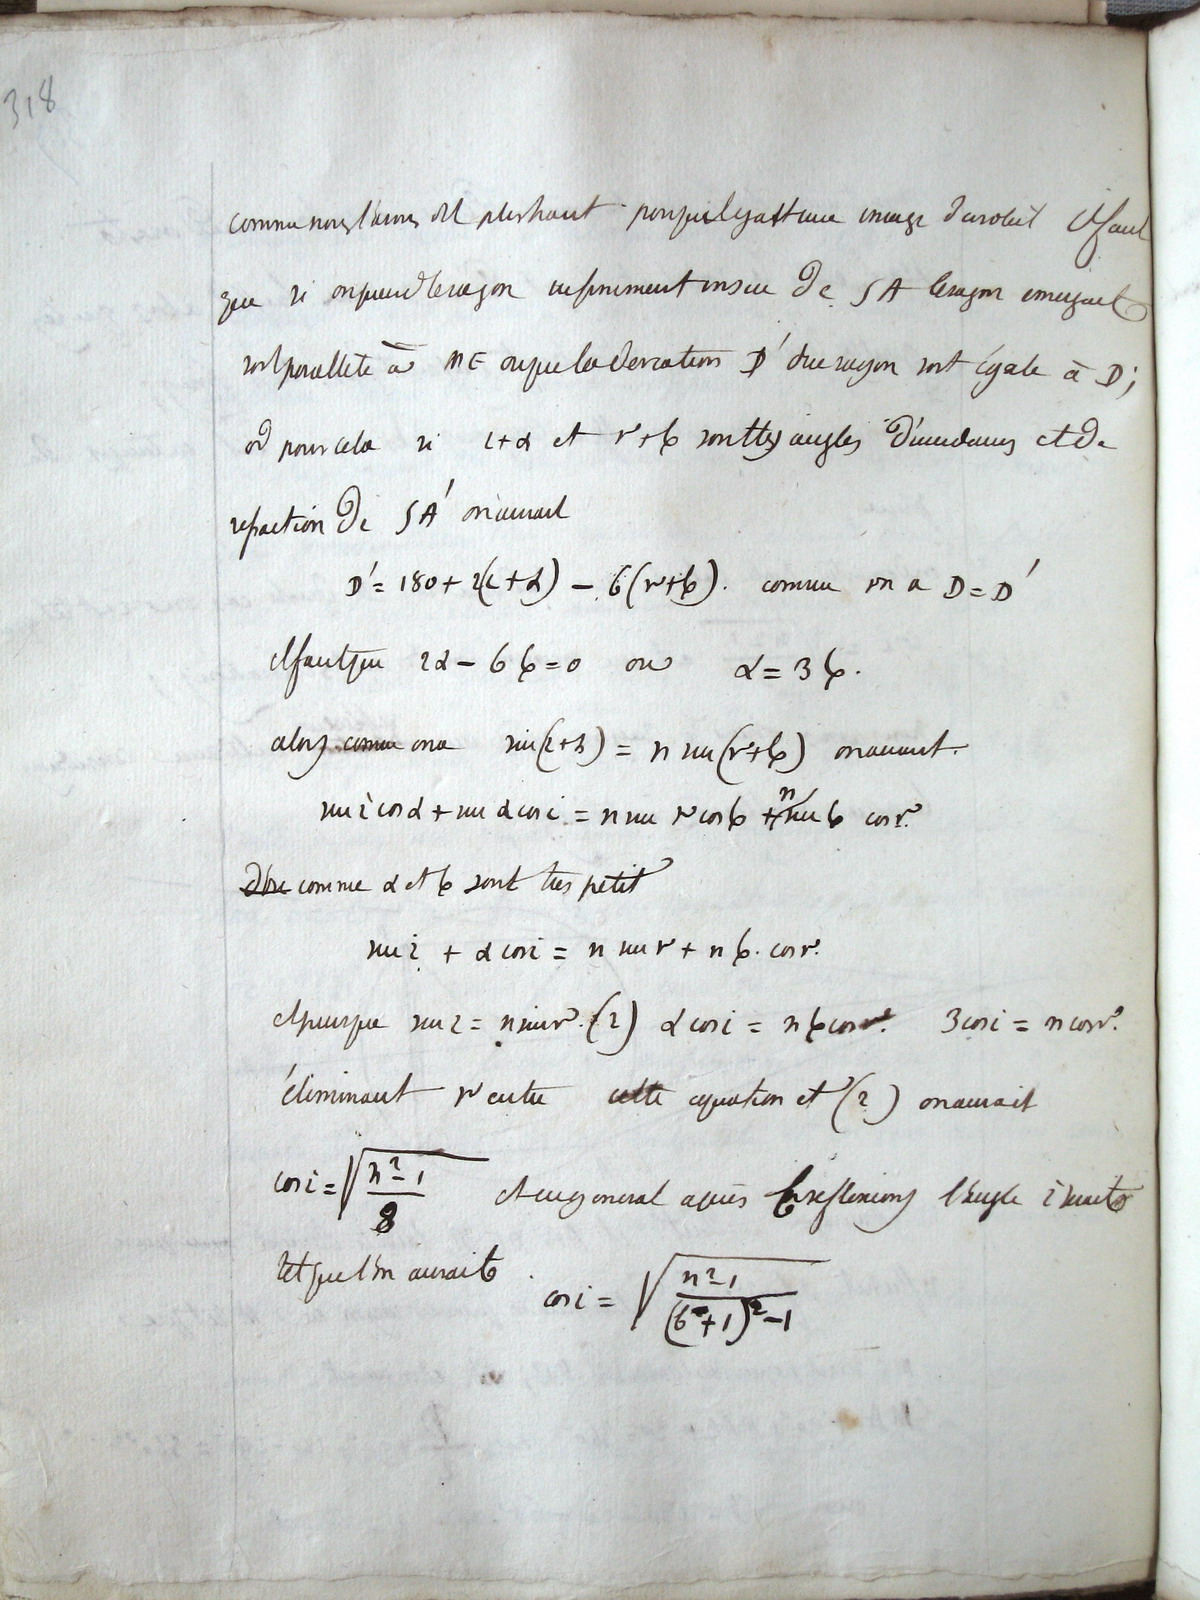 318
comme nous l'avons dit plus haut pour qu'il y ait une image d'arc il faut
que si on prend le rayon infiniment voisin de SA le rayon emergent
soit parallele à ME ou que la deviation D' du rayon soit égale à D;
or pour cela si i+α et r+6 sont les angles d'incidence et de
refraction de SA' on aurait
D' = 180 + 2(i+α) - 6(r+6). comme on a D = D'
il faut que 2α - 6 6 = 0 ou α = 3 6.
alors comme on a sin(i+α) = n sin(r+6) on aurait.
sin i cos α + sin α cos i = n sin r cos 6 + n sin 6 cos r.
comme α et 6 sont tres petit
sin i + α cos i = n sin r + n 6. cos r.
et puisque sin i = n sin r. (2) α cos i = n 6 cos r. 3 cos i = n cos r.
éliminant r entre cette equation et (2) on aurait
cos i = √(n² - 1 / 8) et en general après 6 reflexions l'angle i
tel que l'on aurait
cos i = √(n² - 1 / (6+1)² - 1)